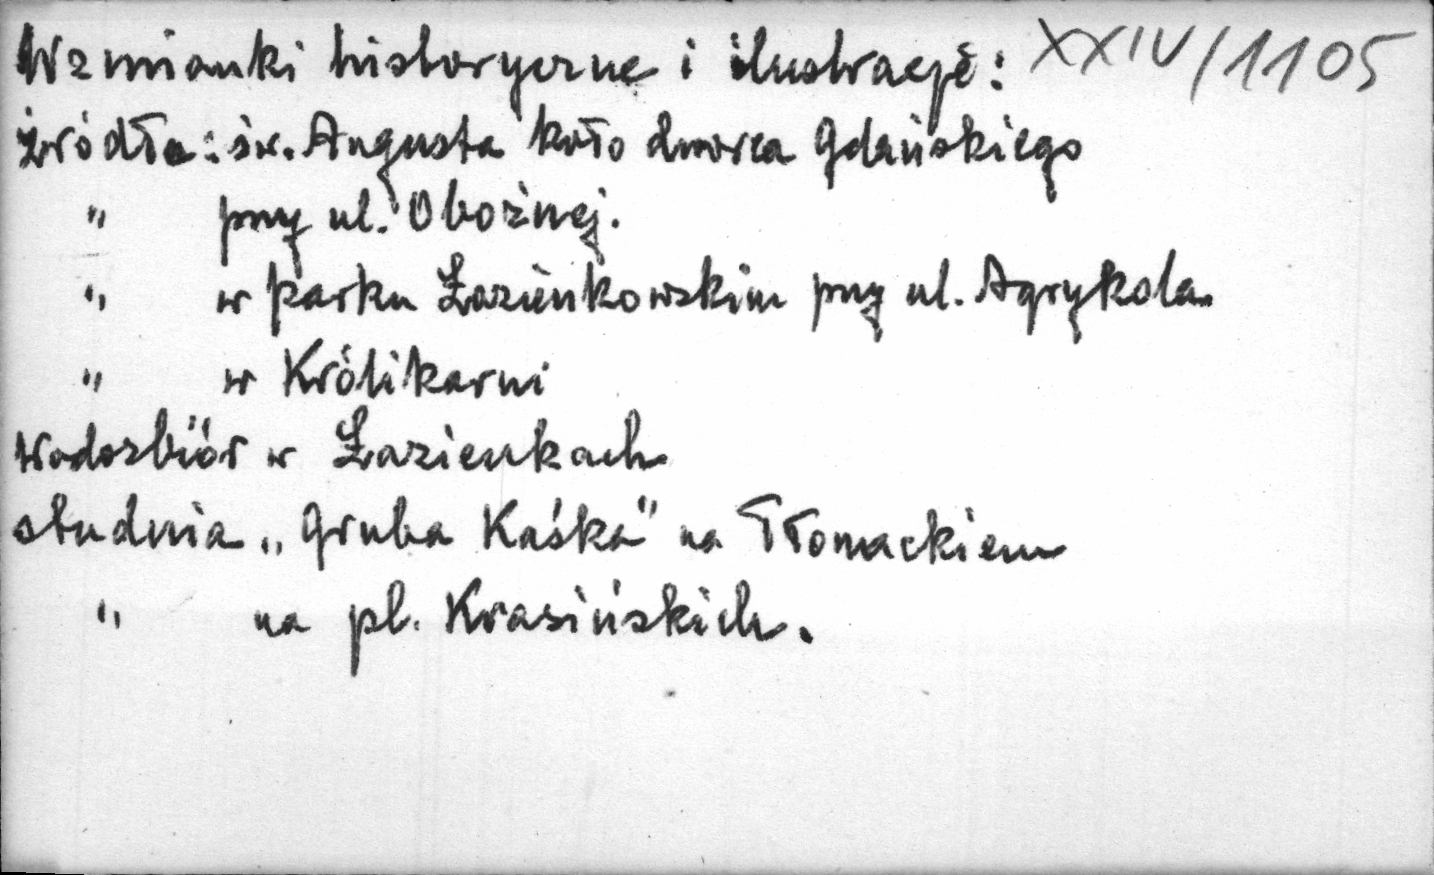 Wzmianki historyczne i ilustracje: XXIV/1105
źródła: św. Augusta koło dworca Gdańskiego
" przy ul. Oboźnej.
" w parku Łazienkowskim przy ul. Agrykola.
" w Królikarni
Wodozbiór w Łazienkach
studnia „Gruba Kaśka" na Tłomackiem
" na pl. Krasińskich.